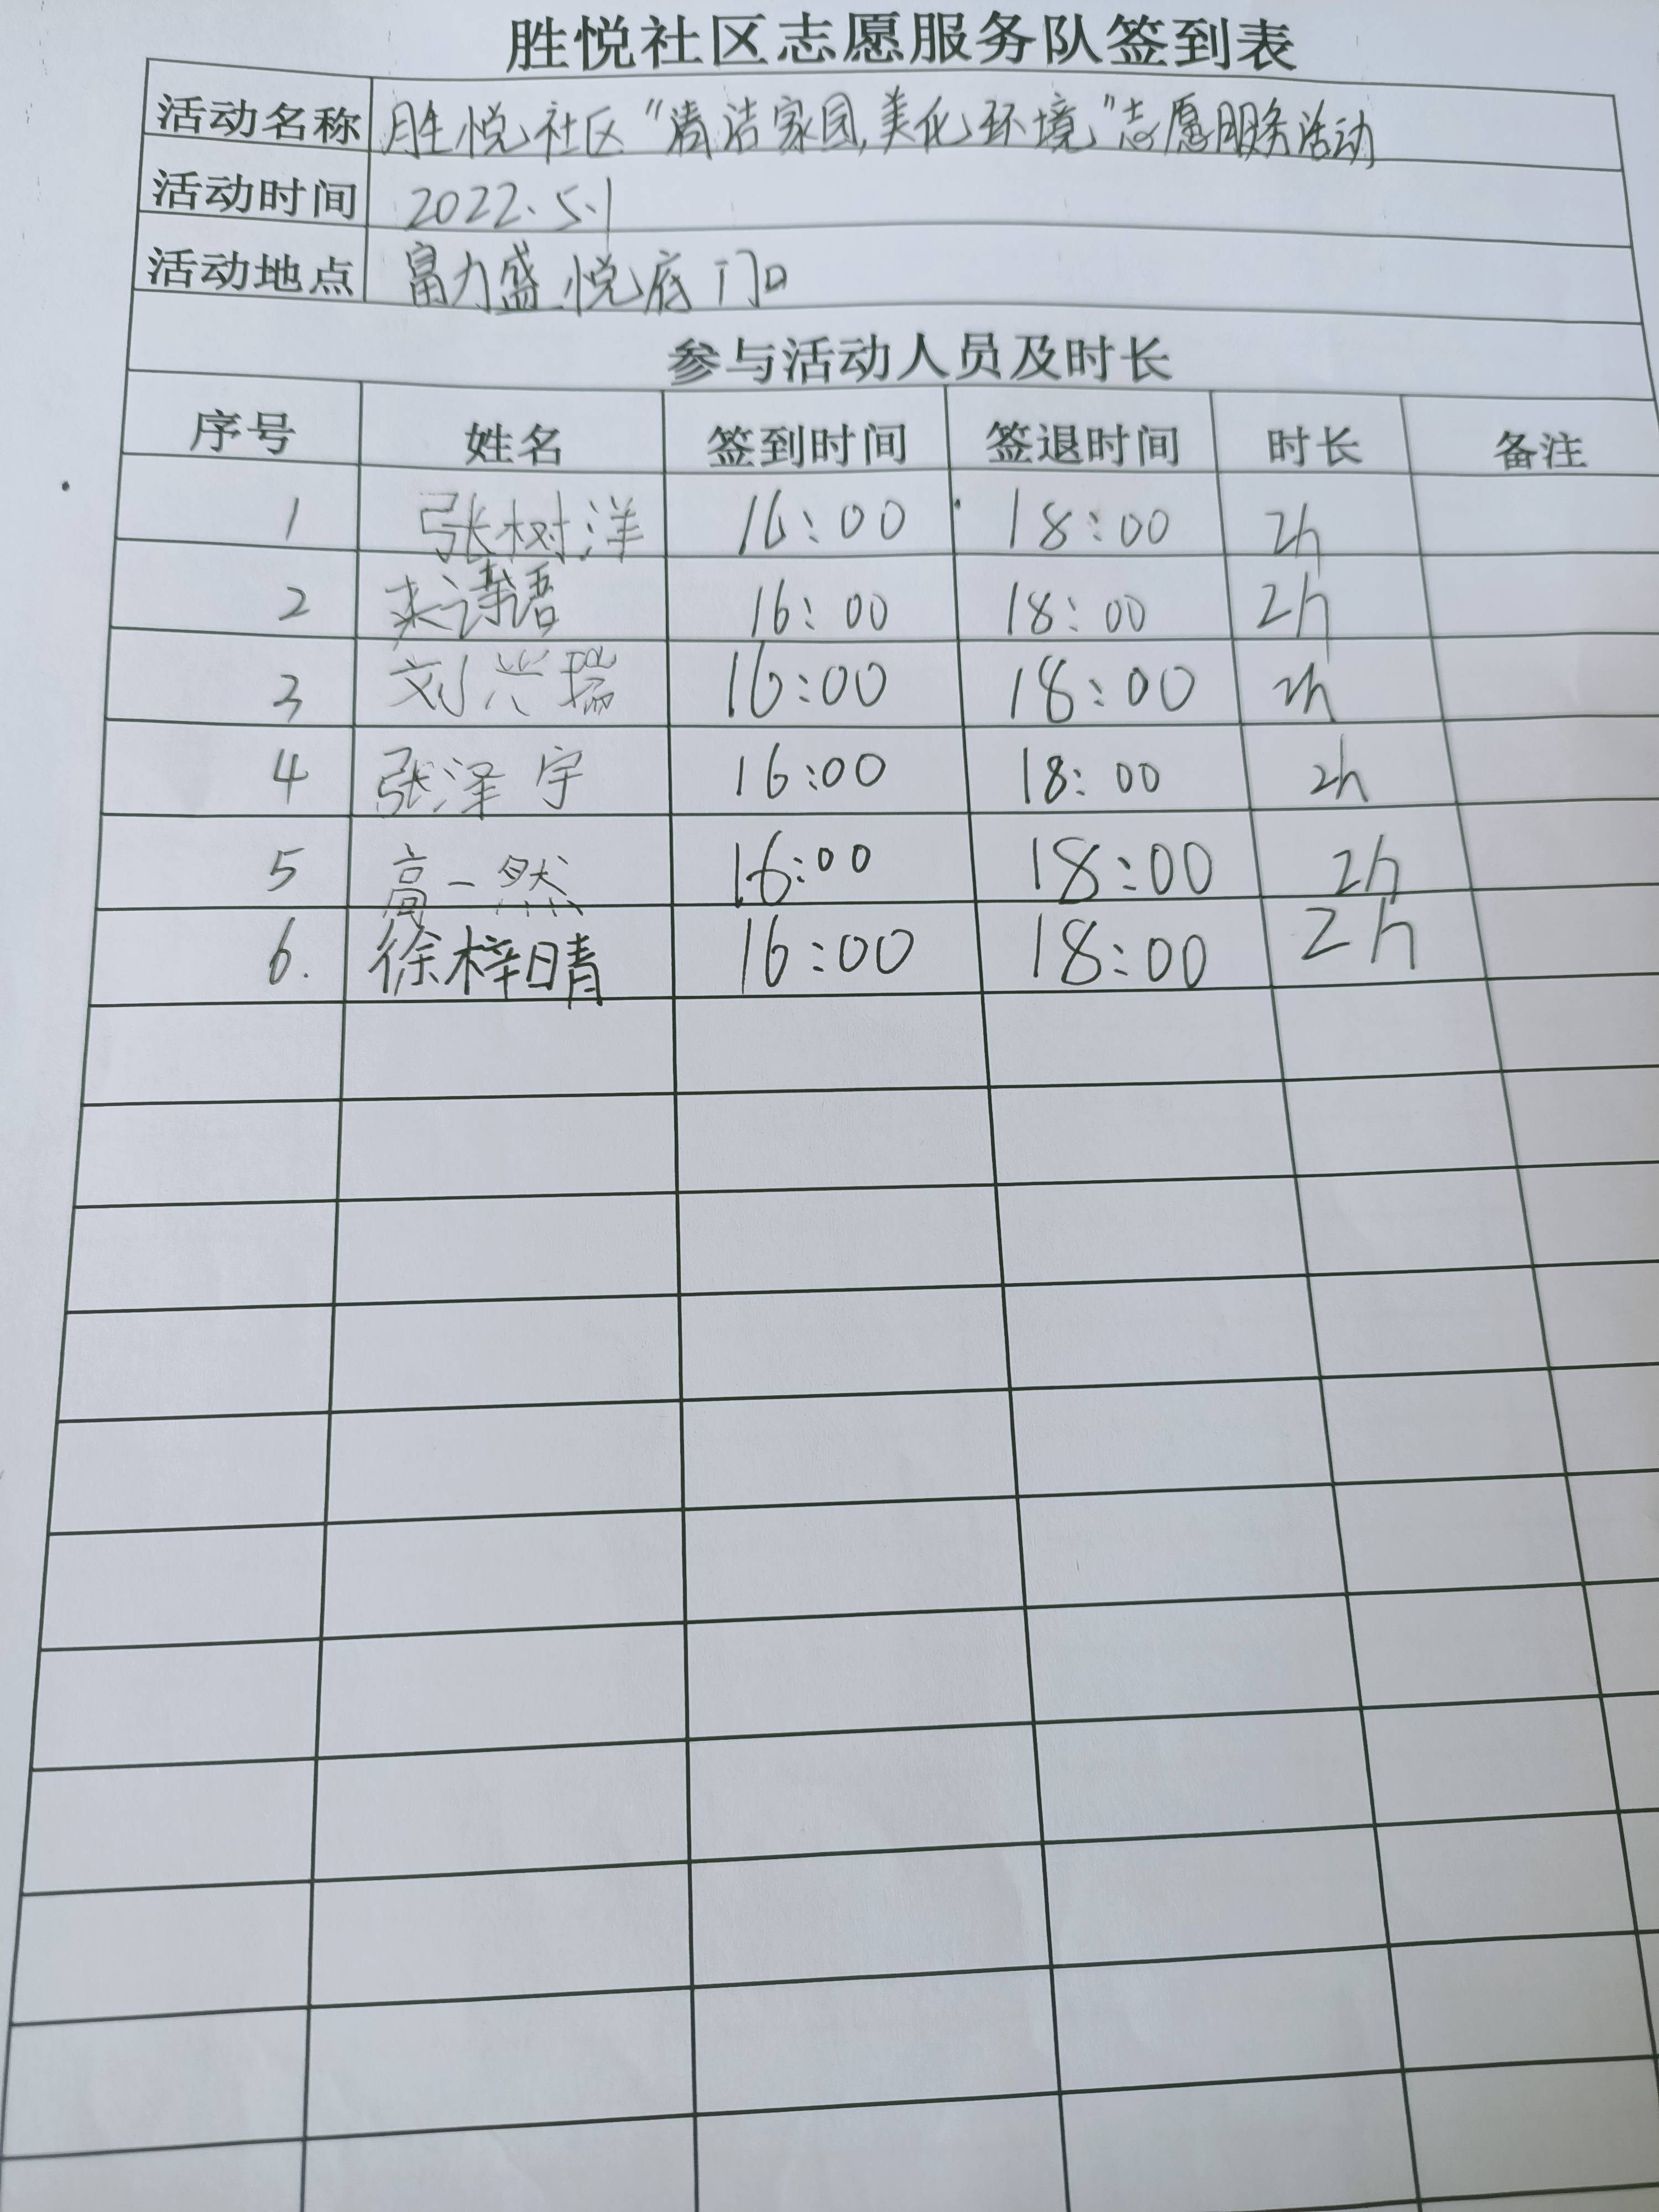 胜悦社区志愿服务队签到表
活动名称 胜悦社区“清洁家园,美化环境”志愿服务活动
活动时间 2022.5.1
活动地点 富力盛悦府门口
参与活动人员及时长
序号 姓名 签到时间 签退时间 时长 备注
1 张树洋 16:00 18:00 2h
2 来诗语 16:00 18:00 2h
3 刘兴瑞 16:00 18:00 2h
4 张泽宇 16:00 18:00 2h
5 高一然 16:00 18:00 2h
6. 徐梓晴 16:00 18:00 2h